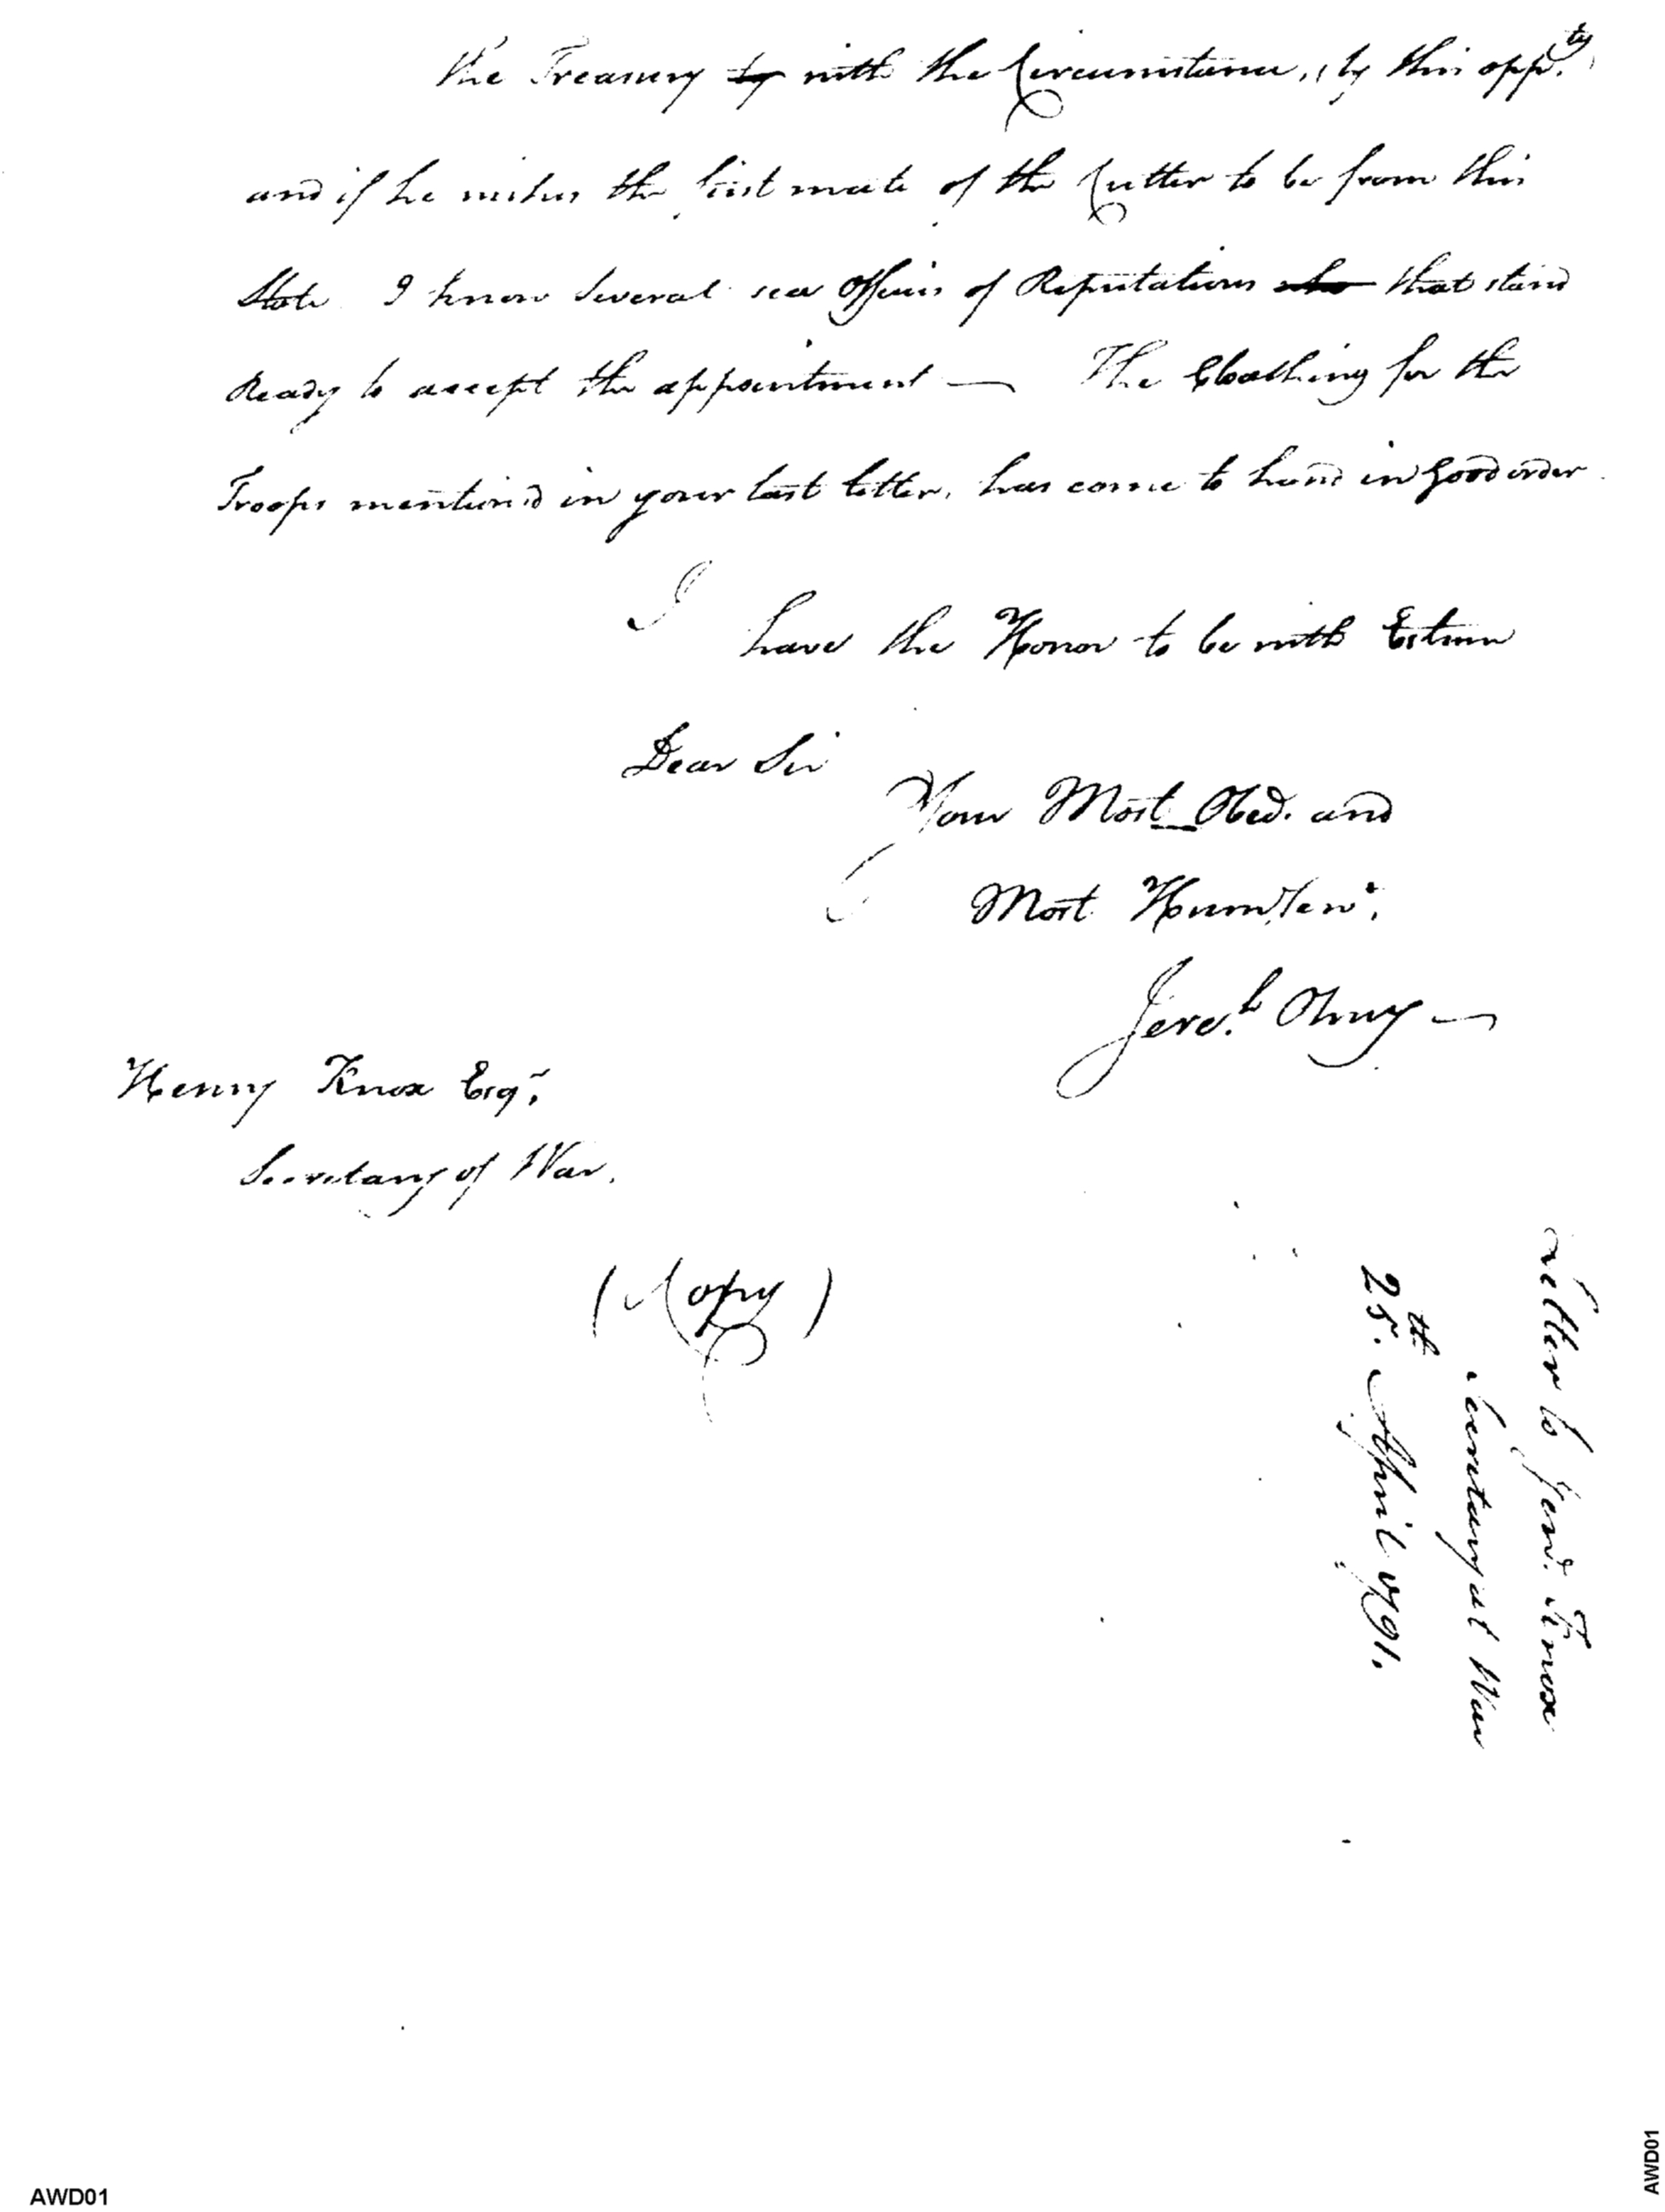 the Treasury by with the Circumstance, by this oppty
and if he wishes the first mate of the Cutter to be from this
State I know Several sea Officers of Reputation who that stand
Ready to accept the appointment — The Cloathing for the
Troops mention'd in your last letter, has come to hand in good order
I
have the Honor to be with Esteem
Dear Sir
Your Most Obed. and
Most Hum Servt.
Jereh Olney —
Henry Knox Esqr.
Secretary of War.
(Copy)
Letter to Genl. Knox
Secretary at War
25th. April 1791.
AWD01
AWD01